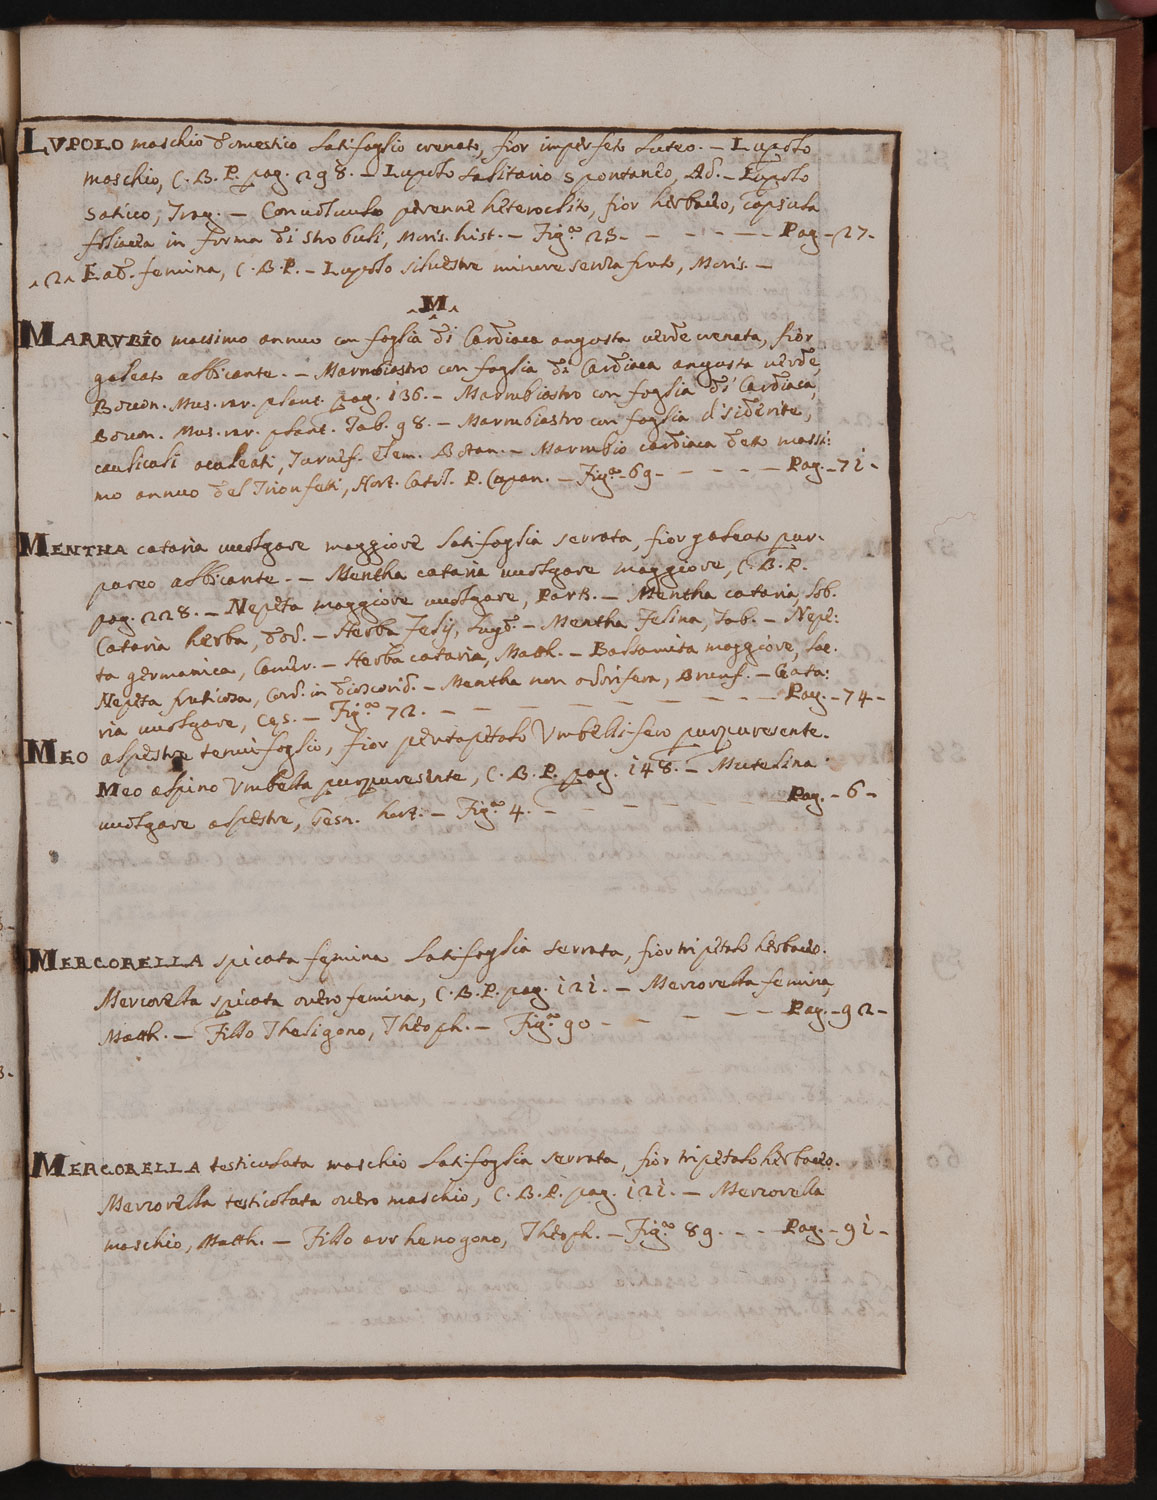 LVPOLO maschio domestico latifoglio crenato, fior imperfeto luteo. – Lupolo
maschio, C. B. P. pag. 298. – Lupolo salitario spontaneo, Ad. – Lupolo
satiuo, Trag. – Conuoluulo perenne heteroclito, fior herbaceo, capsula
foliacea in forma di strobuli, Moris. hist. – Fig.ª 28 – – – – – – Pag. – 27 –
^2^ Ead. femina, C. B. P. – Lupolo siluestre minore senza fruto, Moris. –
^M^
MARRVBIO massimo annuo con foglia di Cardiaca angusta uerde uenata, fior
galeato albicante. – Marrubiastro con foglia di Cardiaca angusta uerde,
Bocon. Mus. rar. plant. pag. 136. – Marrubiastro con foglia di Cardiaca,
Bocon. Mus. rar. plant. Tab. 98. – Marrubiastro con foglia di siderite,
caulicoli aculeati, Turnef. Elem. Botan. – Marrubio cardiaca deto massi:
mo annuo del Trionfetti, Hort. Catol. P. Cupan. – Fig.ª 69 – – – – – Pag. – 71 –
MENTHA cataria uulgare maggiore latifoglia serrata, fior galeato pur:
pureo albicante. – Mentha cataria uulgare maggiore, C. B. P.
pag. 228. – Nepeta maggiore uulgare, Park. – Mentha cataria, Lob.
Cataria herba, Dod. – Herba Felij, Lugd. – Mentha Felina, Tab. – Nepe:
ta germanica, Camer. – Herba cataria, Matth. – Balsamita maggiore, Lac.
Nepeta fruticosa, Cord. in dioscorid. – Mentha non odorifera, Brunf. – Cata:
ria uulgare, Cęs. – Fig.ª 72. – – – – – – – – – Pag. – 74 –
MEO alpestre tenuifoglio, fior pentapetalo Vmbellifero purpuresente.
Meo alpino Vmbella purpuresente, C. B. P. pag. 148. – Mutelina
uulgare alpestre, Gesn. hort. – Fig.ª 4. – – – – – – – Pag. – 6 –
MERCORELLA spicata femina latifoglia serrata, fior tripetalo herbaceo.
Mercorella spicata ouero femina, C. B. P. pag. 121. – Mercorella femina,
Matth. – Fillo Theligono, Theoph. – Fig.ª 90 – – – – – Pag. – 92 –
MERCORELLA testiculata maschio latifoglia serrata, fior tripetalo herbaceo.
Mercorella testicolata ouero maschio, C. B. P. pag. 121. – Mercorella
maschio, Matth. – Fillo arrhenogono, Theoph. – Fig.ª 89. – – Pag. – 91 –